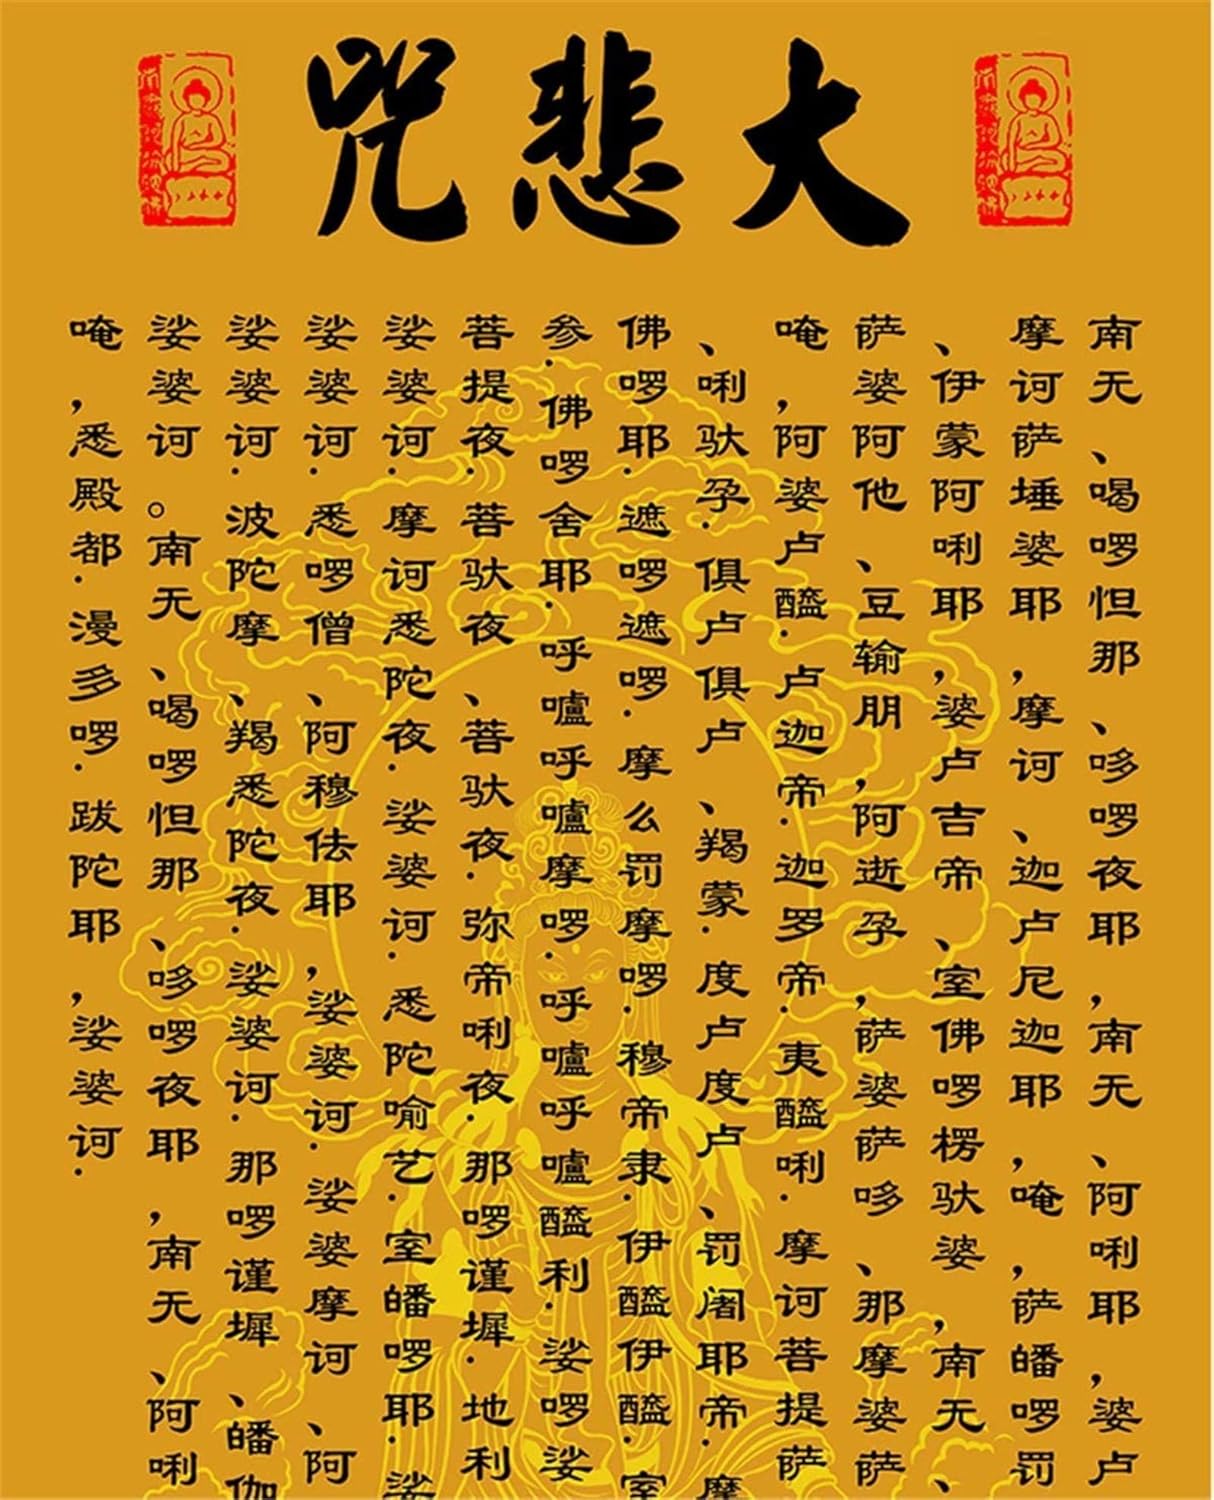 大悲咒
南无、喝啰怛那、哆啰夜耶，南无、阿唎耶，婆卢
摩诃萨埵婆耶，摩诃、迦卢尼迦耶，唵，萨皤啰罚
、伊蒙阿唎耶，婆卢吉帝、室佛啰楞驮婆，南无、
萨婆阿他、豆输朋，阿逝孕，萨婆萨哆、那摩婆萨
唵，阿婆卢醯·卢迦帝·迦罗帝·夷醯唎·摩诃菩提萨
、唎驮孕·俱卢俱卢、羯蒙·度卢度卢、罚阇耶帝·摩
佛啰耶·遮啰遮啰·摩么罚摩啰·穆帝隶·伊醯伊醯·室
参·佛啰舍耶·呼嚧呼嚧摩啰·呼嚧呼嚧醯利·娑啰娑
菩提夜·菩驮夜、菩驮夜·弥帝唎夜·那啰谨墀·地利
娑婆诃·摩诃悉陀夜·娑婆诃·悉陀喻艺·室皤啰耶·娑
娑婆诃·悉啰僧、阿穆佉耶，娑婆诃·娑婆摩诃、阿
娑婆诃·波陀摩、羯悉陀夜·娑婆诃·那啰谨墀、皤伽
娑婆诃。南无、喝啰怛那、哆啰夜耶，南无、阿唎
唵，悉殿都·漫多啰·跋陀耶，娑婆诃·